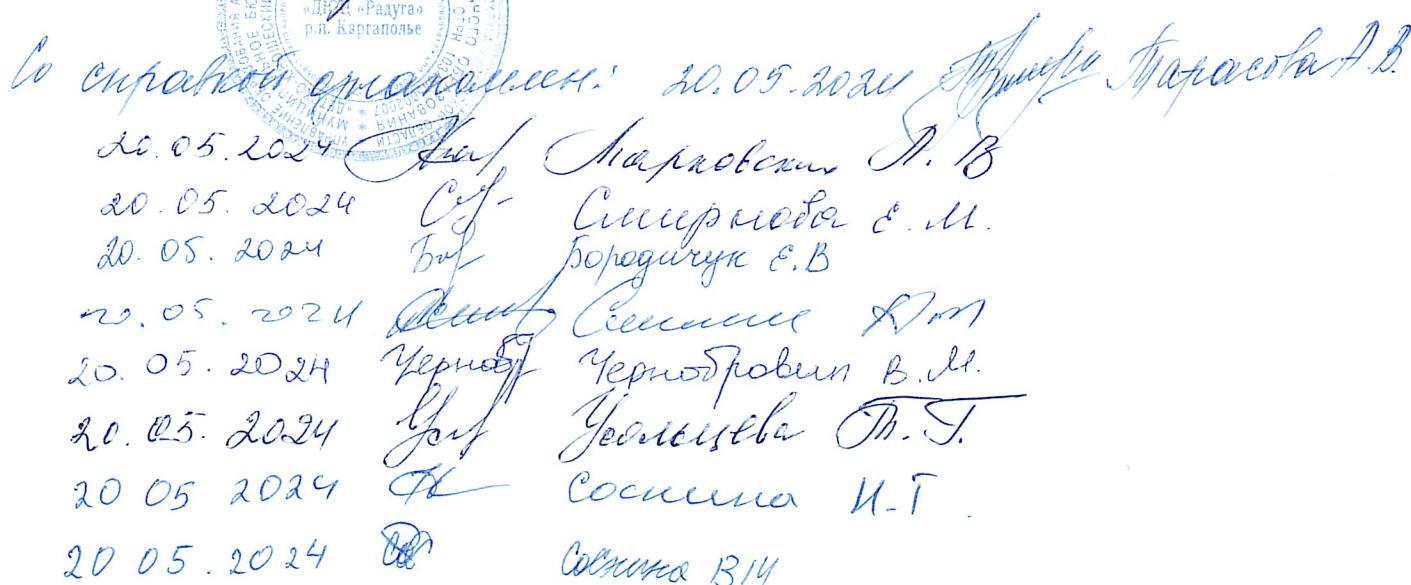 «ДЮЦ «Радуга»
р.п. Каргаполье
Со справкой ознакомлен: 20.05.2024 Тарасова А.В.
20.05.2024 Марковских Л. В
20.05.2024 Смирнова Е.М.
20.05.2024 Бородичук Е.В
20.05.2024
20.05.2024 Чернобр Чернобровин В.М.
20.05.2024 Усольцева Т.Г.
20 05 2024 Соснина Н-Г.
20 05.2024 Соснина